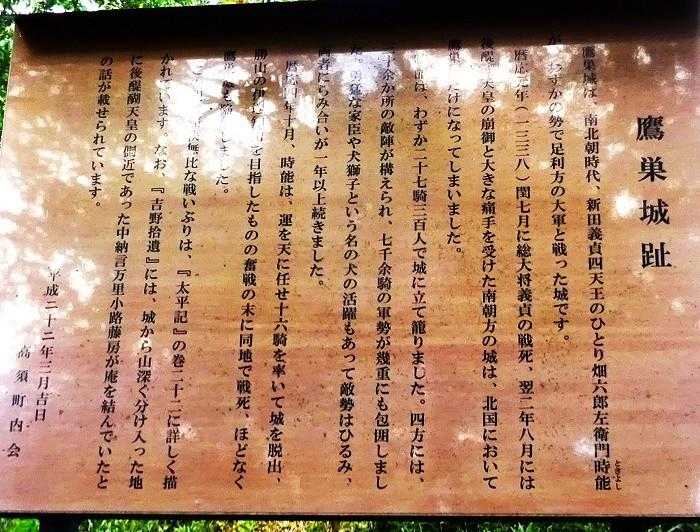 鷹巣城趾
鷹巣城は、南北朝時代、新田義貞四天王のひとり畑六郎左衛門時能
ときよし
が、わずかの勢で足利方の大軍と戦った城です。
暦応元年（一三三八）閏七月に総大将義貞の戦死、翌二年八月には
後醍醐天皇の崩御と大きな痛手を受けた南朝方の城は、北国において
鷹巣城だけになってしまいました。
は、わずか二十七騎三百人で城に立て籠りました。四方には、
三十余か所の敵陣が構えられ、七千余騎の軍勢が幾重にも包囲しまし
た。勇猛な家臣や犬獅子という名の犬の活躍もあって敵勢はひるみ、
両者にらみ合いが一年以上続きました。
年十月、時能は、運を天に任せ十六騎を率いて城を脱出、
勝山の伊 を目指したものの奮戦の末に同地で戦死、ほどなく
鷹 しました。
無比な戦いぶりは、『太平記』の巻二十二に詳しく描
かれています。なお、『吉野拾遺』には、城から山深く分け入った地
に後醍醐天皇の側近であった中納言万里小路藤房が庵を結んでいたと
の話が載せられています。
平成二十二年三月吉日
高須町内会